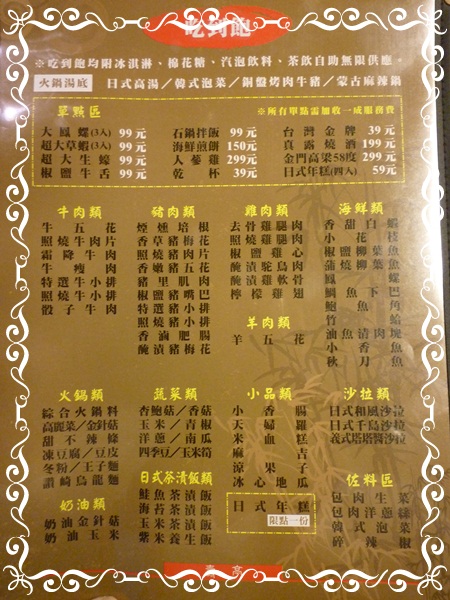 吃到飽
※吃到飽均附冰淇淋、棉花糖、汽泡飲料、茶飲自助無限供應。
火鍋湯底 日式高湯／韓式泡菜／銅盤烤肉牛豬／蒙古麻辣鍋
單點區 ※所有單點需加收一成服務費
大鳳螺(3入) 99元 石鍋拌飯 99元 台灣金牌 39元
超大草蝦(3入) 99元 海鮮煎餅 150元 真露燒酒 199元
超大生蠔 99元 人蔘雞 299元 金門高粱58度 299元
椒鹽牛舌 99元 乾杯 39元 日式年糕(四入) 59元
牛肉類
牛五花
照燒牛肉片
霜降牛肉
牛瘦肉
特選牛小排
照燒牛小排
骰子牛肉
豬肉類
煙燻培根
香草豬梅花
照燒豬肉片
香嫩豬五花
豬里肌肉
椒鹽豬嘴巴
特選豬小排
照燒豬小排
香滷肥腸
醃漬豬梅花
雞肉類
去骨雞腿肉
照燒雞腿肉
椒鹽雞心
醃漬鴕鳥肉
醃漬雞軟骨
檸檬雞翅
羊肉類
羊五花
海鮮類
香甜白蝦
小花枝
椒鹽柳葉魚
蒲燒柳葉魚
鳳螺
鯛魚下巴
鮑魚角
竹肉清蛤
油魚肉塊
小香魚
秋刀魚
火鍋類
綜合火鍋料
高麗菜／金針菇
甜不辣條
凍豆腐／豆皮
冬粉／王子麵
讚岐烏龍麵
奶油類
奶油金針菇
奶油玉米
蔬菜類
杏鮑菇／香菇
玉米／青椒
洋蔥／南瓜
四季豆／玉米筍
日式茶漬飯類
鮭魚茶漬飯
海苔茶漬飯
玉米茶漬飯
紫米養生飯
小品類
小香腸
天婦羅
米血糕
麻吉
涼果子
冰心地瓜
日式年糕
限點一份
沙拉類
日式和風沙拉
日式千島沙拉
義式塔塔醬沙拉
佐料區
包肉生菜
包肉洋蔥
韓式泡菜
碎辣椒